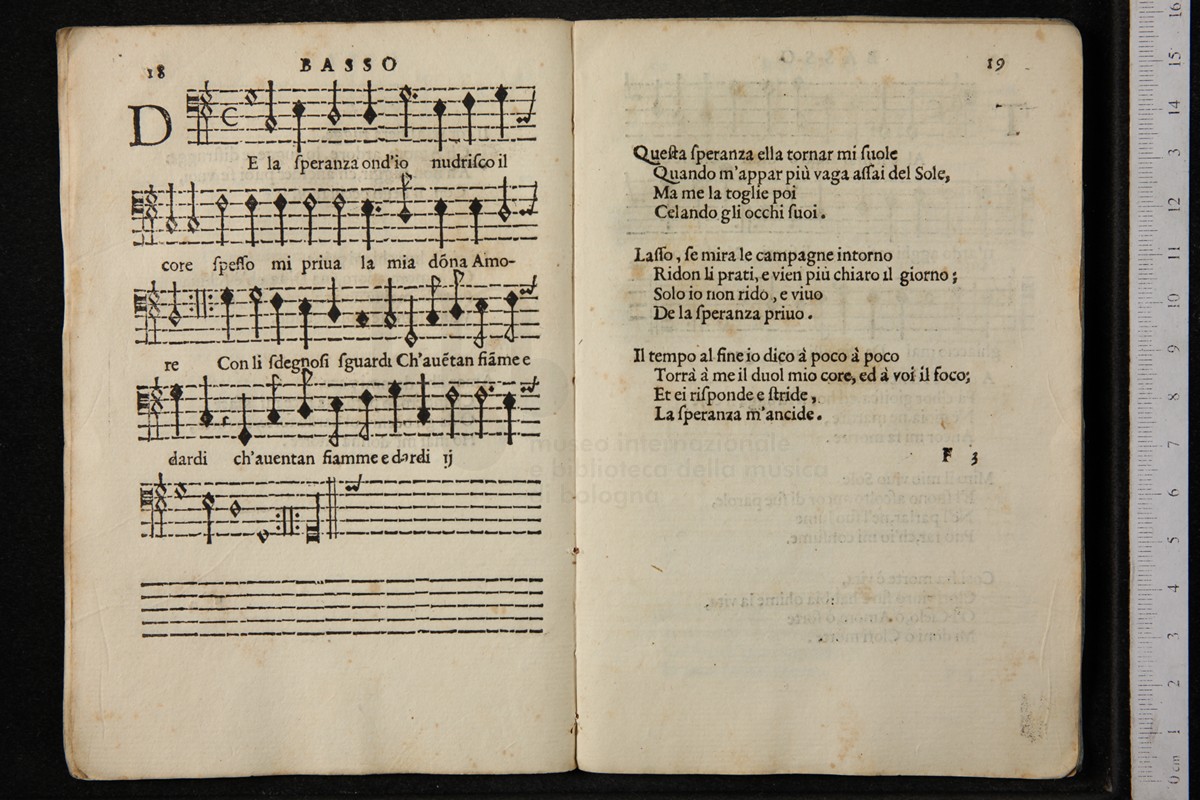 18
BASSO
DE la ſperanza ond'io nudriſco il
core ſpeſſo mi priua la mia dõna Amo-
re Con li ſdegnoſi ſguardi Ch'auẽtan fiãme e
dardi ch'auentan fiamme e dardi ij
19
Queſta ſperanza ella tornar mi ſuole
Quando m'appar più vaga aſſai del Sole,
Ma me la toglie poi
Celando gli occhi ſuoi.
Laſſo, ſe mira le campagne intorno
Ridon li prati, e vien più chiaro il giorno;
Solo io non rido, e viuo
De la ſperanza priuo.
Il tempo al fine io dico à poco à poco
Torrà à me il duol mio core, ed à voi il foco;
Et ei riſponde e ſtride,
La ſperanza m'ancide.
F 3
museo internazionale
e biblioteca della musica
di bologna
0 cm 1 2 3 4 5 6 7 8 9 10 11 12 3 14 15 16